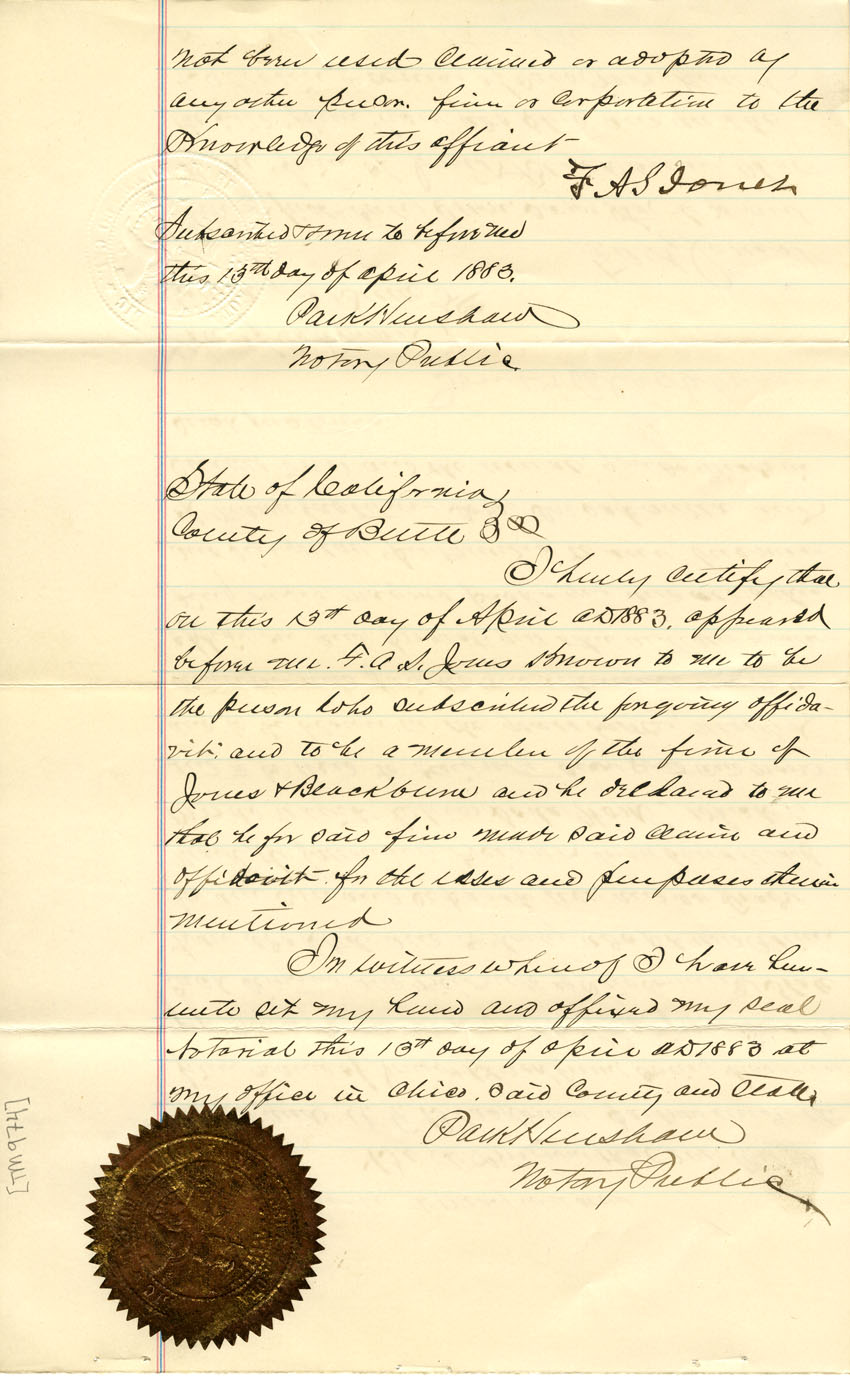 not been used claimed or adopted by
any other person. firm or corporation to the
Knowledge of this affiant
F A S Jones
Subscribed & sworn to before me
this 13th day of april 1883.
Park Henshaw
Notary Public
State of California
County of Butte } ss
I hereby certify that
on this 13th day of April AD 1883. appeared
before me. F. A. S. Jones Known to me to be
the person who subscribed the forgoing affida-
vit. and to be a member of the firm of
Jones & Blackburn and he declared to me
that he for said firm made said claim and
affidavit for the uses and purposes therein
mentioned
In witness whereof I have here-
unto set my hand and affixed my seal
Notarial this 13th day of april AD 1883 at
my office in Chico. said County and State
Park Henshaw
Notary Public
[TM 974]